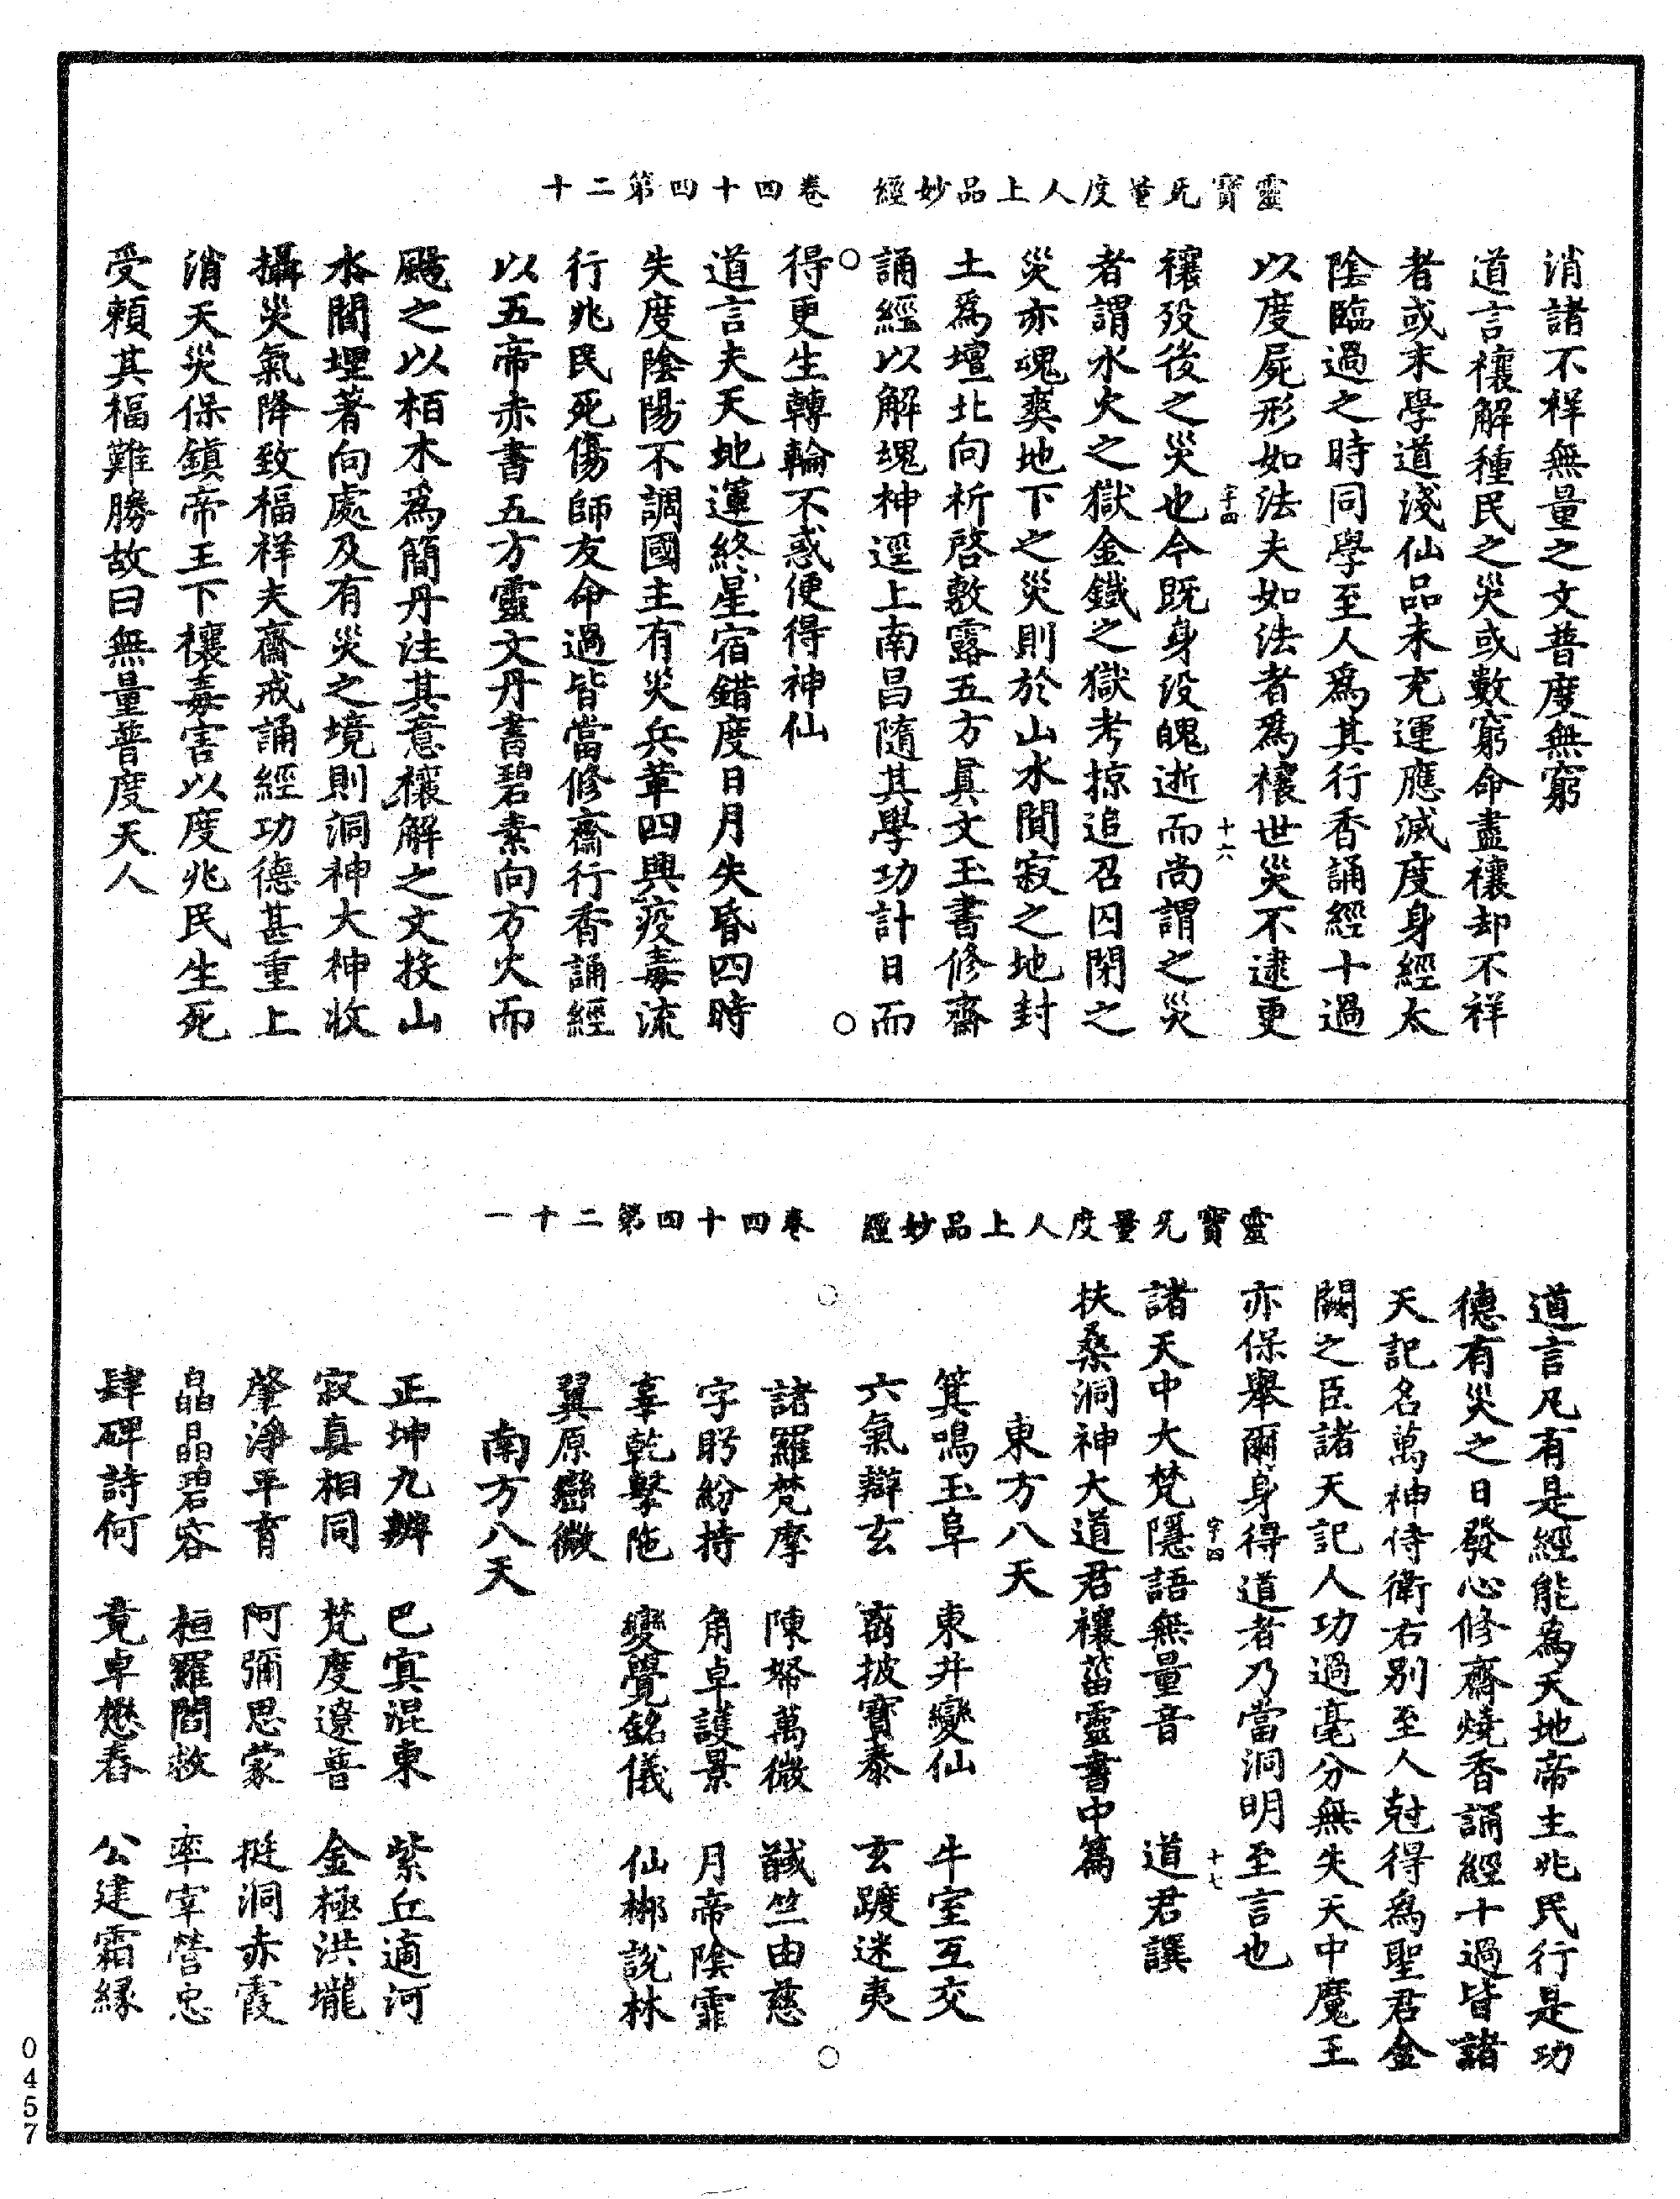 靈寶无量度人上品妙經　卷四十四第二十
消諸不祥無量之文普度無窮
道言禳解種民之災或數窮命盡禳却不祥
者或末學道淺仙品未充運應滅度身經太
陰臨過之時同學至人爲其行香誦經十過
以度屍形如法夫如法者爲禳世災不逮更
字四　十六
禳歿後之災也今既身没魄逝而尚謂之災
者謂水火之獄金鐵之獄考掠追召囚閉之
災亦魂爽地下之災則於山水間寂之地封
土爲壇北向祈啓敷露五方眞文玉書修齋
誦經以解塊神逕上南昌隨其學功計日而
得更生轉輪不惑便得神仙
道言夫天地運終星宿錯度日月失昏四時
失度陰陽不調國主有災兵革四興疫毒流
行兆民死傷師友命過皆當修齋行香誦經
以五帝赤書五方靈文丹書碧素向方火而
颺之以栢木爲簡丹注其意禳解之文投山
水間埋著向處及有災之境則洞神大神收
攝災氣降致福祥夫齋戒誦經功德甚重上
消天災保鎮帝王下禳毒害以度兆民生死
受賴其福難勝故曰無量普度天人
靈寶无量度人上品妙經　卷四十四第二十一
道言凡有是經能爲天地帝主兆民行是功
德有災之日發心修齋燒香誦經十過皆諸
天記名萬神侍衛右别至人尅得爲聖君金
闕之臣諸天記人功過毫分無失天中魔王
亦保舉爾身得道者乃當洞明至言也
字四　十七
諸天中大梵隱語無量音　道君譔
扶桑洞神大道君禳菑靈書中篇
東方八天
箕鳴玉阜　東井變仙　牛室互交
六氣辯玄　裔披寶泰　玄踱迷夷
諸羅梵摩　陳帑萬微　馘竺由慈
字盻紛持　角卓護景　月帝陰霏
辜乾擊陁　變覺銘儀　仙梛説林
翼原巒微
南方八天
正坤九辨　巴寘混東　紫丘逥河
寂真相同　梵度遼普　金極洪壠
肇淨平育　阿彌思蒙　挺洞赤霞
晶晶碧容　桓羅閻救　率宰營忠
肆碑詩何　竟卓懋春　公建霜緣
0457